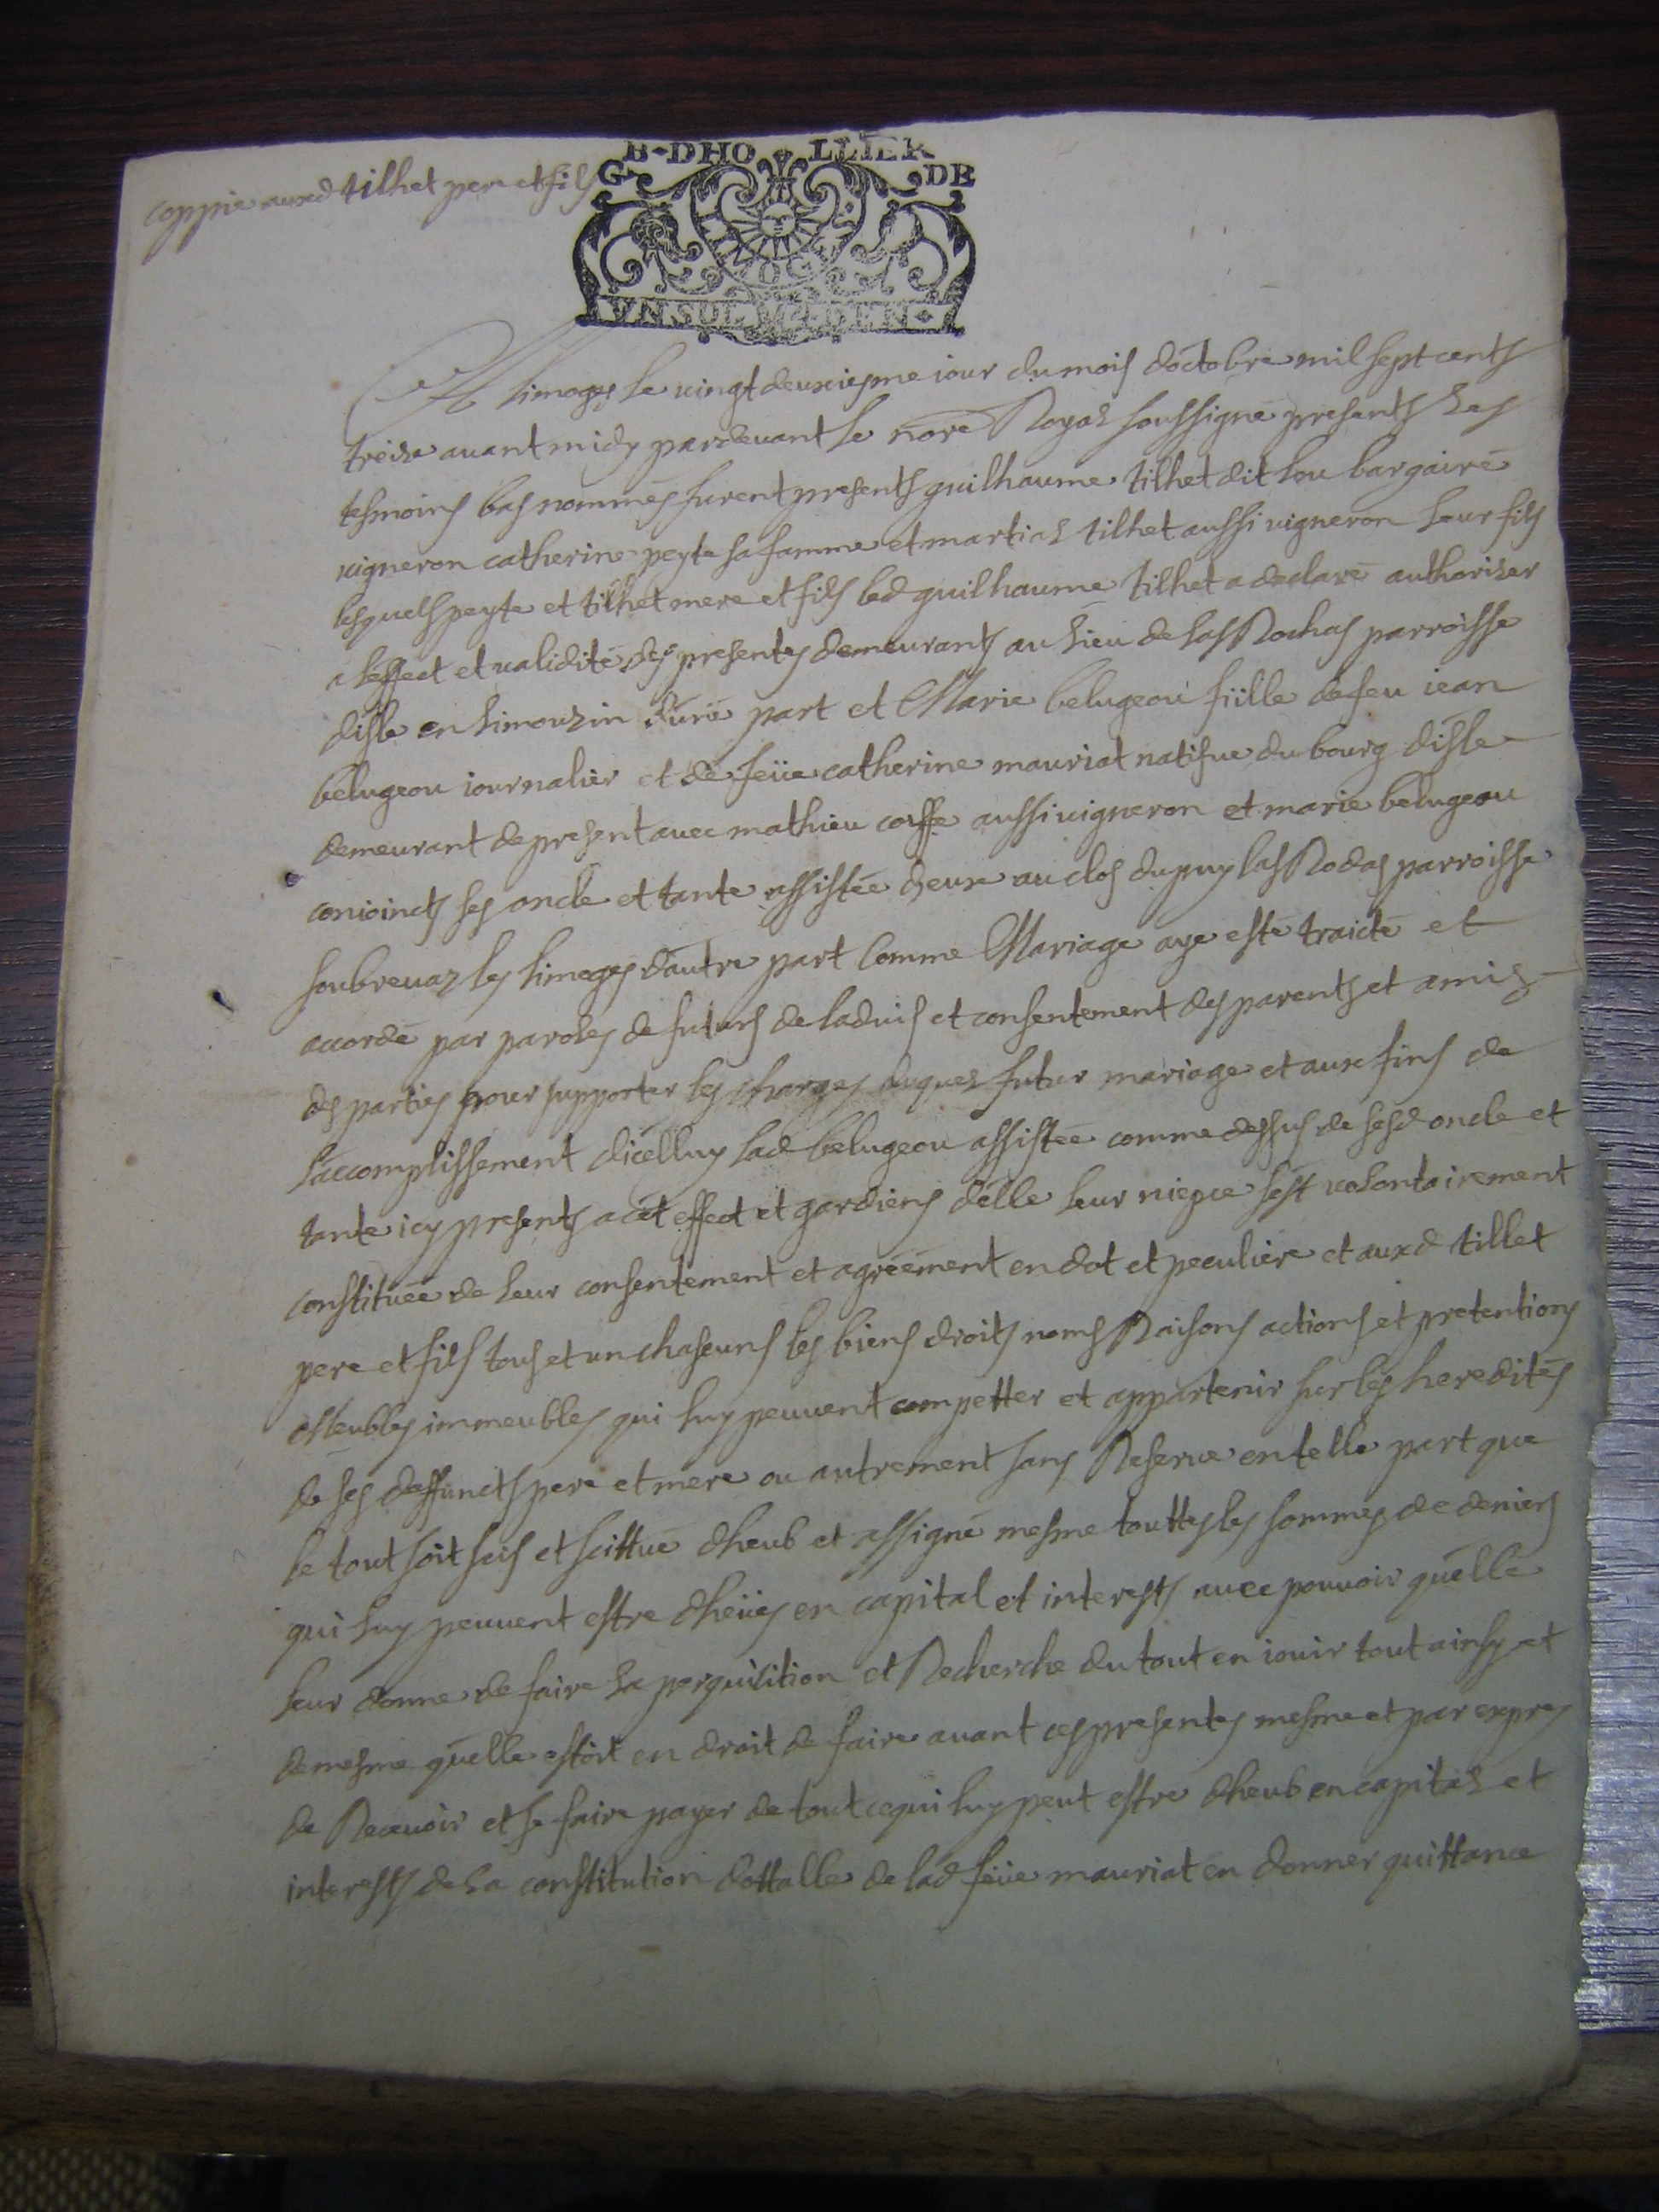 coppie auxd tilhet pere et fils
B-DHO LLIER
G DE
UN SOL 4 DEN
A limoges le vingt deuxiesme iour du mois doctobre mil sept cents
treize avant midy pardevant le nore Royal soussigné presents les
tesmoins bas nommés furent presents guilhaume tilhet dit lou bargairé
vigneron catherine peyte sa famme et martial tilhet aussi vigneron leur fils
lesquels peyte et tilhet mere et fils led guilhaume tilhet a declaré authoriser
a leffect et validité des presentes demeurants au lieu de las Rochas parroisse
disle en limouzin d'une part et Marie belugeou fiille de feu iean
belugeou iournalier et de feüe catherine mauriat natifve du bourg disle
demeurant de present avec mathieu coiffe aussi vigneron et marie belugeou
conioincts ses oncle et tante assistée d'eux au clos du puy las Rodas parroisse
soubrevas les limoges d'autre part Comme Mariage aye esté traicté et
accordé par paroles de futurs de ladvis et consentement des parents et amis
des parties pour supporter les charges duquel futur mariage et aux fins de
l'accomplissement d'icelluy lad belugeou assistée comme dessus de sesd oncle et
tante icy presents a cet effect et gardiens d'elle leur niepce s'est volontairement
constituée de leur consentement et agréément en dot et peculiere et auxd tillet
pere et fils tous et un chascuns les biens droits noms Raisons actions et pretentions
Meubles immeubles qui luy peuvent competter et appartenir sur les heredités
de ses deffuncts pere et mere ou autrement sans Reserve en telle part que
le tout soit scis et scittué dheub et assigné mesme touttes les sommes de deniers
qui luy peuvent estre dheües en capital et interests avec pouvoir qu'elle
leur donne de faire la perquisition et Recherche du tout en iouir tout ainsy et
de mesme qu'elle estoit en droit de faire avant ces presentes mesme et par expres
de Recevoir et se faire payer de tout ce qui luy peut estre dheub en capital et
interests de la constitution dottalle de lad feüe mauriat en donner quittance